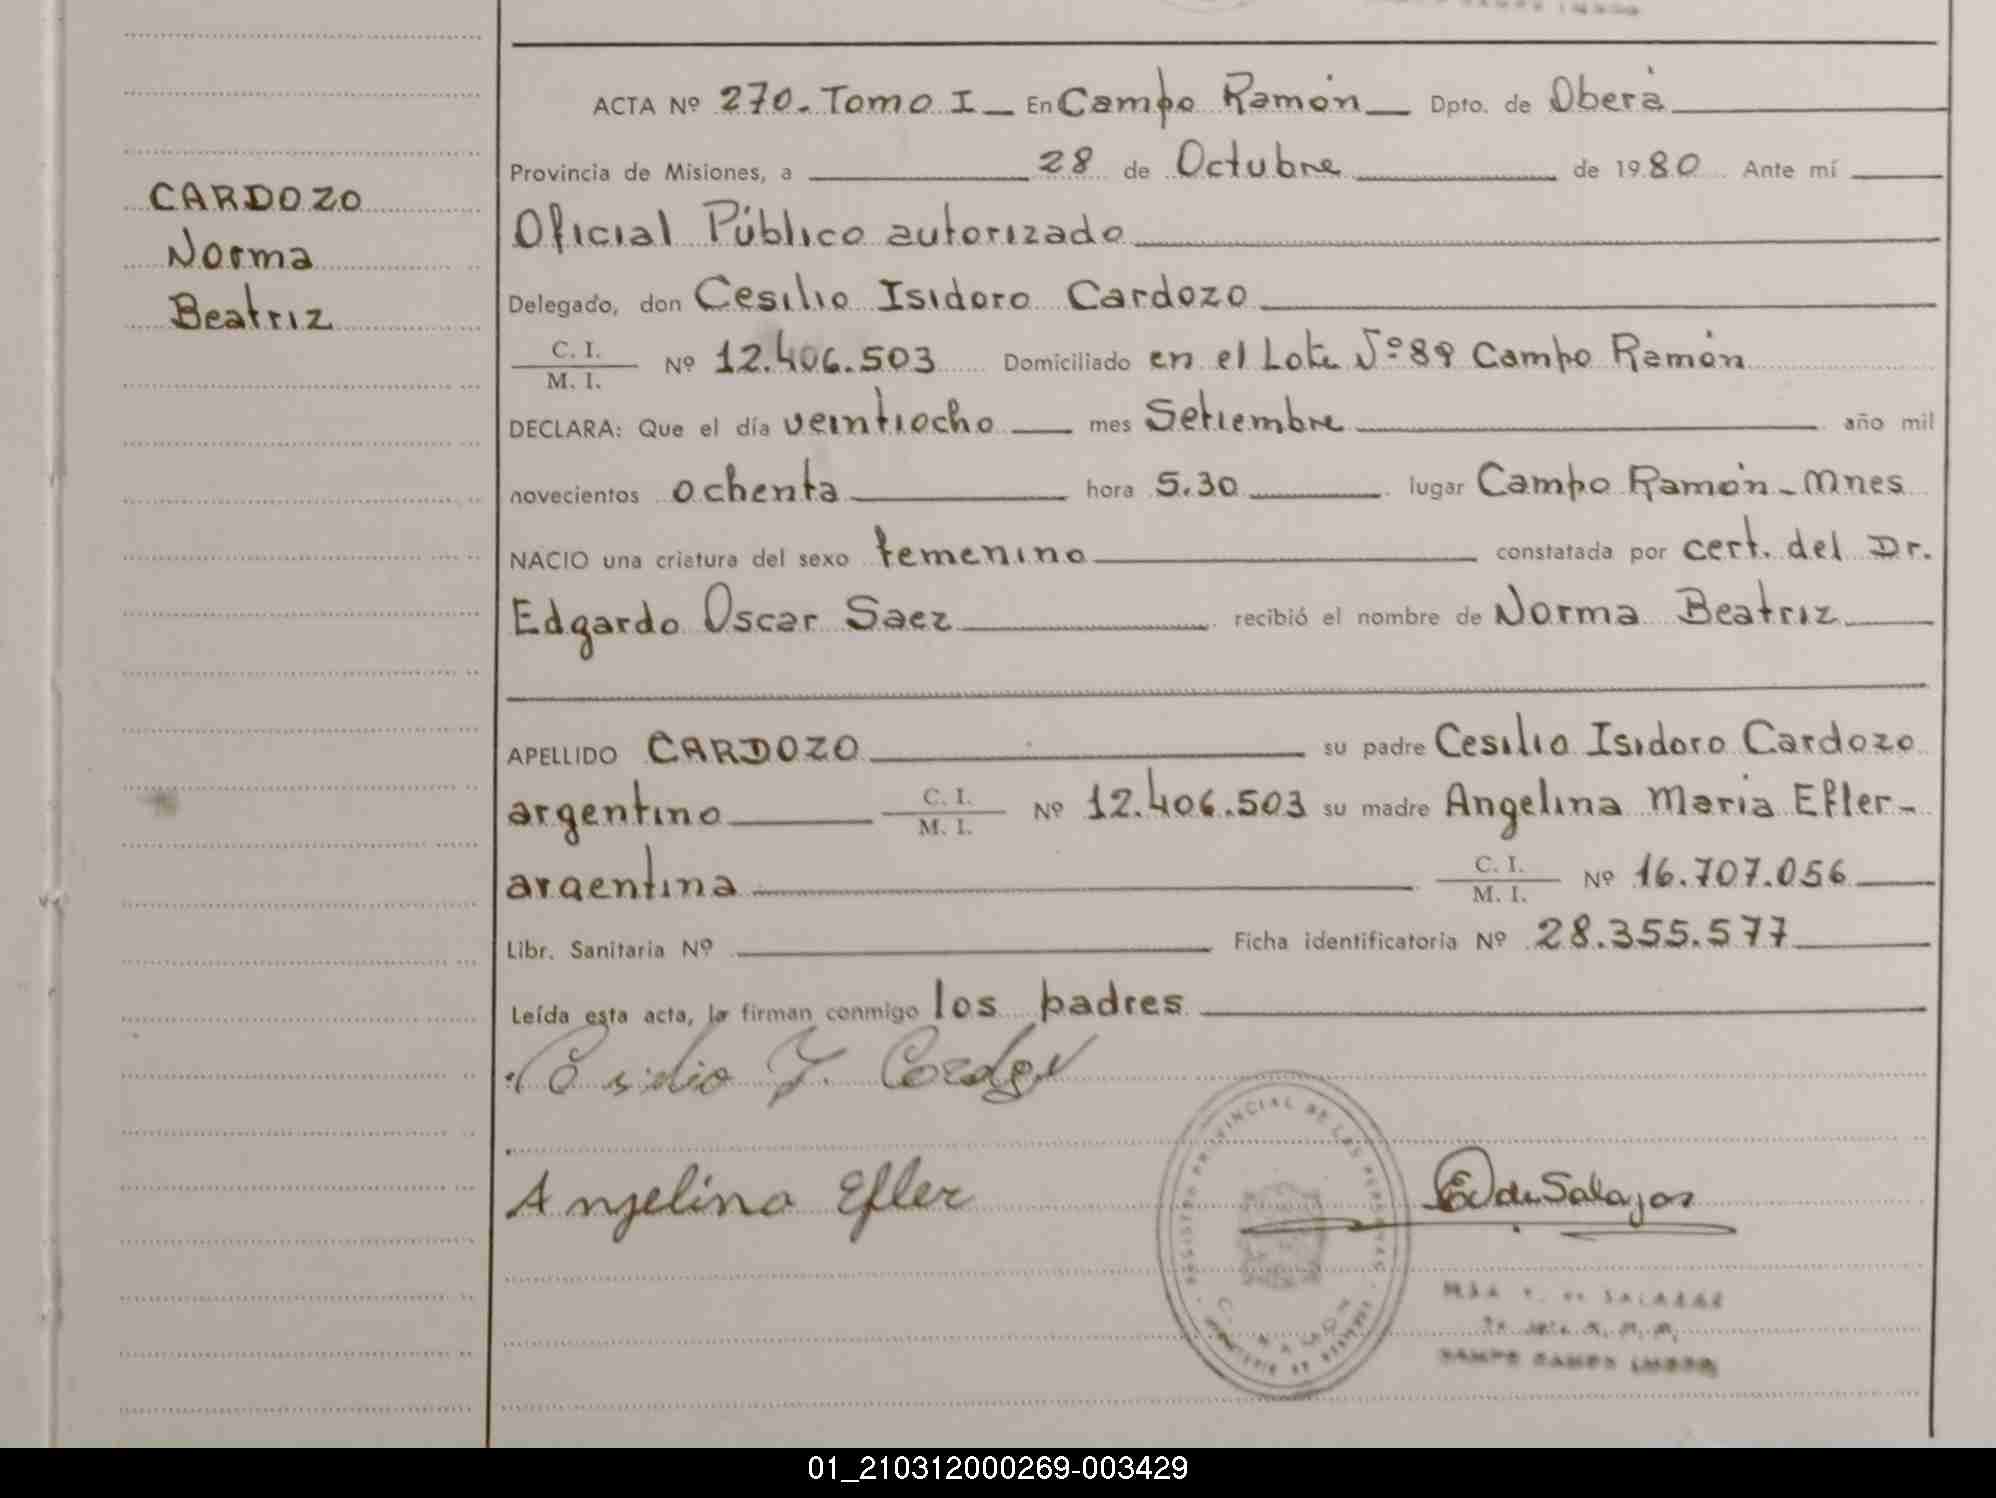 ACTA Nº 270. Tomo I En Campo Ramón Dpto. de Oberá
Provincia de Misiones, a 28 de Octubre de 1980 Ante mí
CARDOZO
Norma
Beatriz
Oficial Público autorizado
Delegado, don Cesilio Isidoro Cardozo
C. I.
M. I.
Nº 12.406.503 Domiciliado en el Lote Nº 89 Campo Ramón
DECLARA: Que el día veintiocho mes Setiembre año mil
novecientos ochenta hora 5.30 lugar Campo Ramón - Mnes
NACIO una criatura del sexo femenino constatada por cert. del Dr.
Edgardo Oscar Saez recibió el nombre de Norma Beatriz
APELLIDO CARDOZO su padre Cesilio Isidoro Cardozo
argentino C. I. M. I. Nº 12.406.503 su madre Angelina Maria Efler-
argentina C. I. M. I. Nº 16.707.056
Libr. Sanitaria Nº Ficha identificatoria Nº 28.355.577
Leída esta acta, la firman conmigo los padres
Angelina Efler
REGISTRO PROVINCIAL DE LAS PERSONAS
01_210312000269-003429